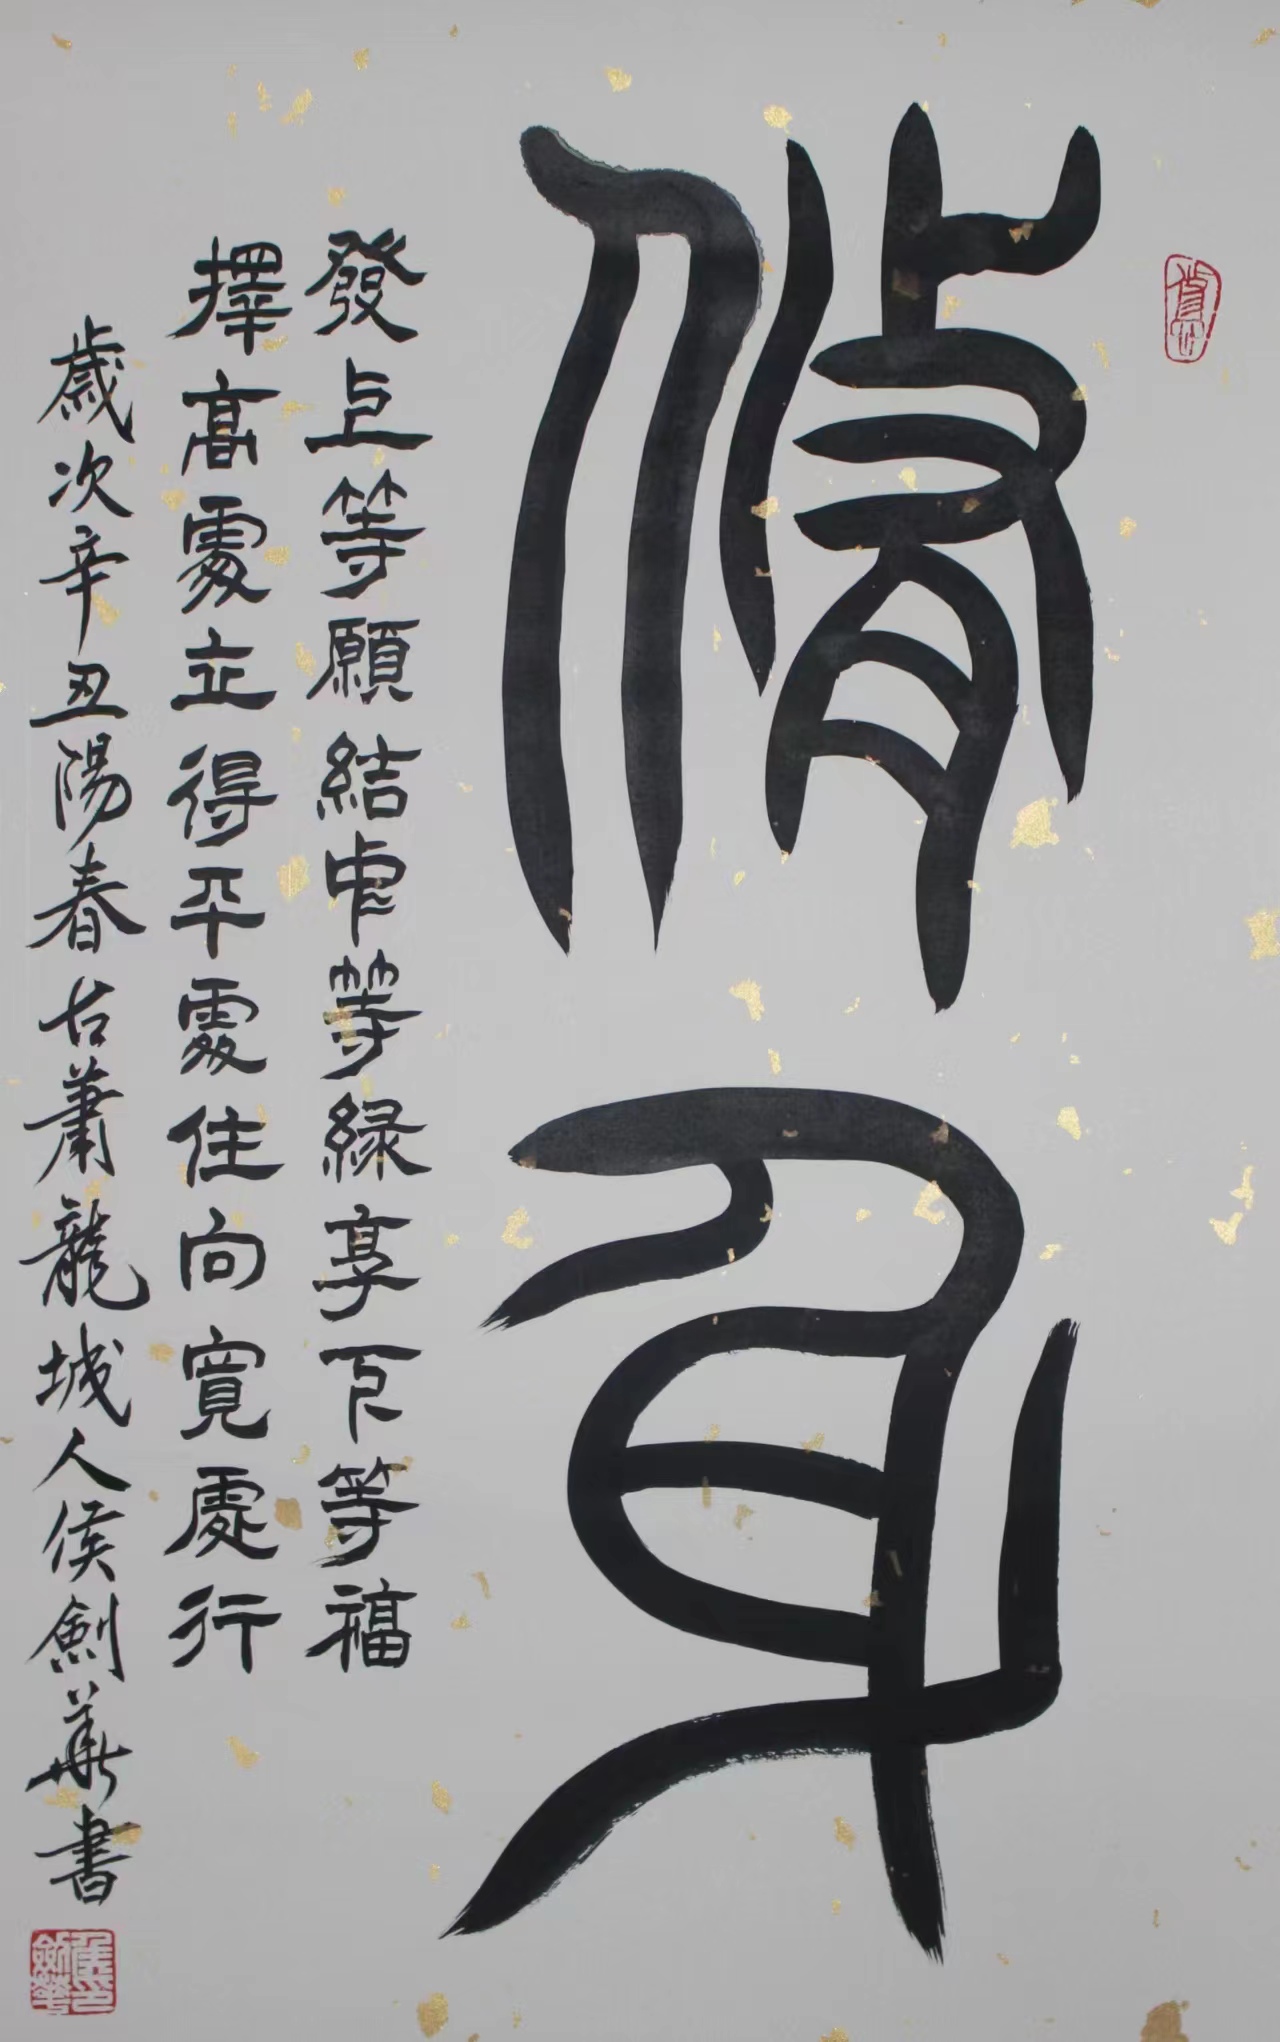 脩身
發上等願結中等緣享下等福
擇高處立得平處住向寬處行
歲次辛丑陽春古蕭龍城人侯劍華書
侯劍華印